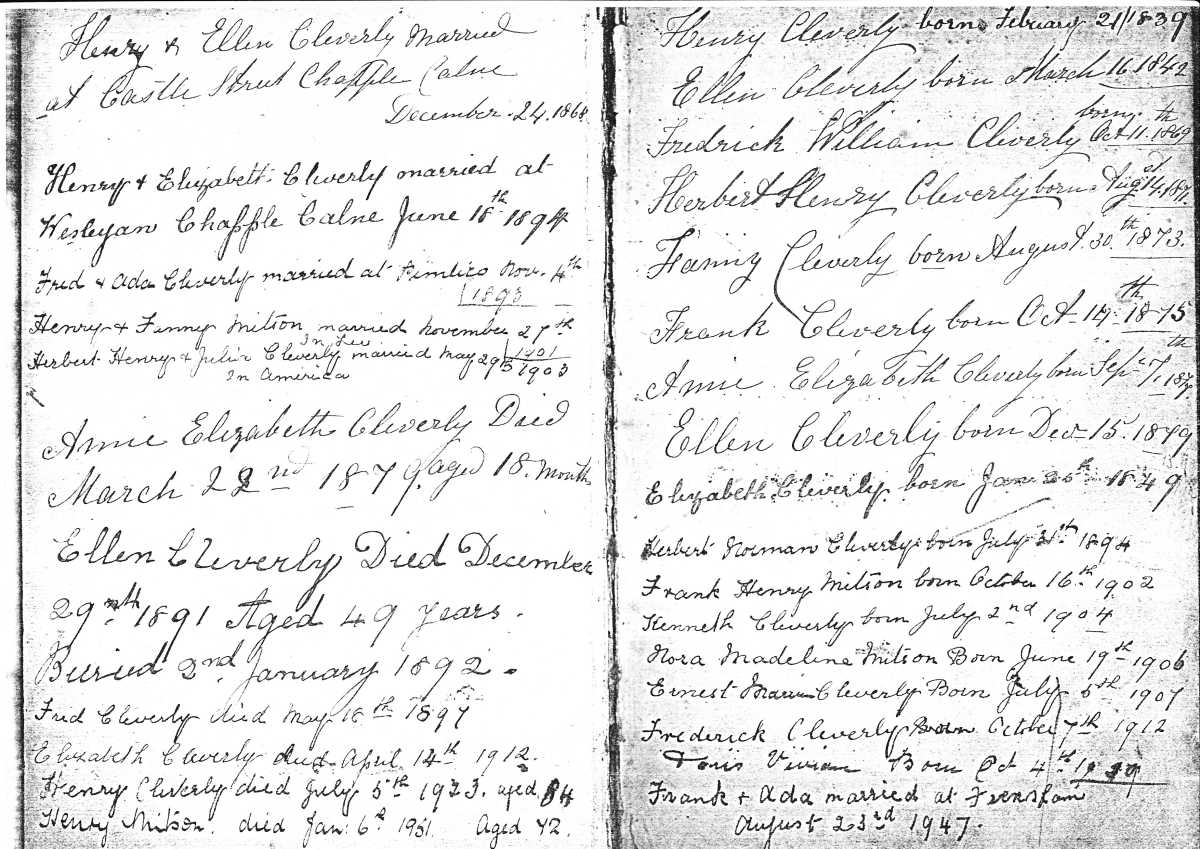 Henry & Ellen Cleverly Married
at Castle Street Chapple Calne
December. 24. 1868
Henry & Elizabeth Cleverly married at
Wesleyan Chapple Calne June 18th 1894
Fred & Ada Cleverly married at Pimlico Nov. 4th
1893
Henry & Fanny Mitson married november 27th
In Lee 1901
Herbert Henry & Julia Cleverly married May 29th 1903
In America
Annie Elizabeth Cleverly Died
March 22nd 1879. aged 18. Months
Ellen Cleverly Died December
29th 1891 Aged 49 years.
Buried 2nd January 1892.
Fred Cleverly died May 18th 1897
Elizabeth Cleverly died April 14th 1912.
Henry Cleverly died July 5th 1923. aged 84
Henry Mitson. died Jan: 6th 1951. Aged 72.
Henry Cleverly born February 21/1839
Ellen Cleverly born March 16 1842
born
Fredrick William Cleverly Oct 11th 1869
Herbert Henry Cleverly born Aug 14. 1871
Fanny Cleverly born August. 30th 1873.
Frank Cleverly born Oct 14th 1875
Annie Elizabeth Cleverly born Sep
Ellen Cleverly born Dec 15. 1879
Elizabeth Cleverly born Jan 1849
Herbert Norman Cleverly born July 1894
Frank Henry Mitson born October 16th 1902
Kenneth Cleverly born July 2nd 1904
Nora Madeline Mitson Born June 19th 1906
Ernest Cleverly Born July 5th 1907
Frederick Cleverly Born October 7th 1912
Doris Vivian Born Oct 4th
Frank & Ada married at Frensham
August 23rd 1947.